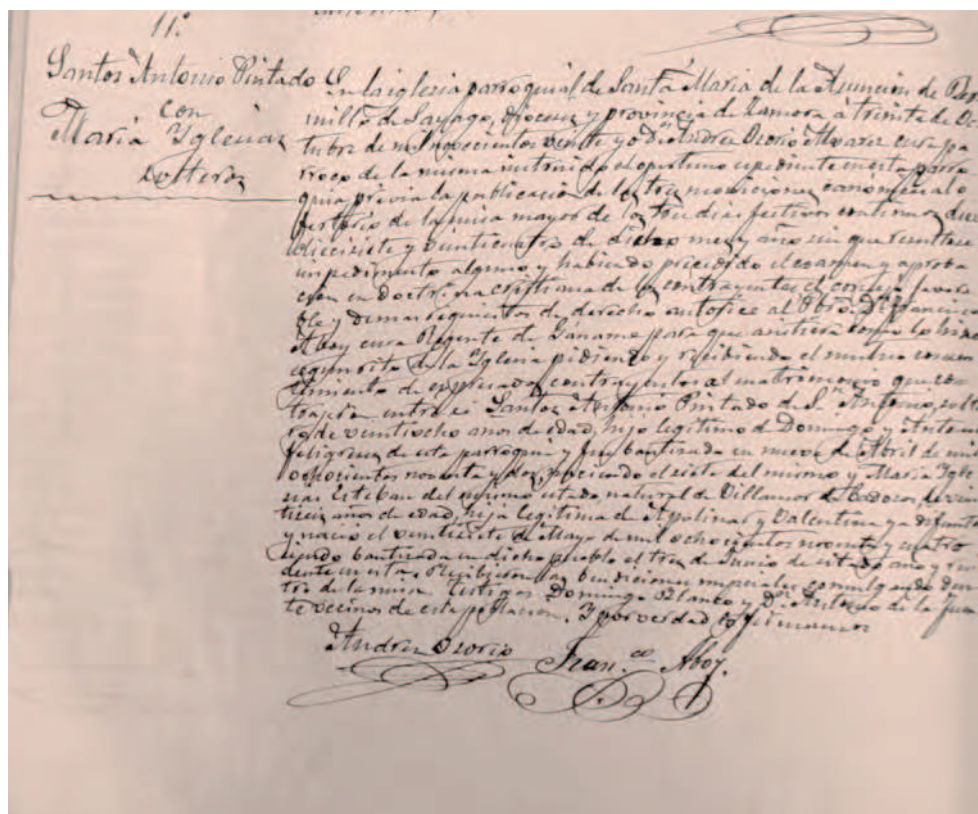 11º
Santos Antonio Pintado
con
María Yglesias
Solteros
En la iglesia parroquial de Santa Maria de la Asuncion de Ber
millo de Sayago, diocesis y provincia de Zamora á treinta de Oc
tubre de mil novecientos veinte yo Dn Andrés Osorio Alvarez cura pa
rroco de la misma instruido el oportuno expediente en esta parro
quia previa la publicacion de las tres moniciones canonicas al o
fertorio de la misa mayor de los tres dias festivos continuos diez
diecisiete y veinticuatro de dicho mes y año sin que resultase
impedimento alguno y habiendo precedido el examen y aproba
cion en Doctrina cristiana de los contrayentes el consejo favora
ble y demas requisitos de derecho autoricé al Pbro. Dn Francisco
Aboy cura Regente de Gáname para que asistiera como lo hizo
segun rito de la Yglesia pidiendo y recibiendo el mutuo consen
timiento de expresados contrayentes al matrimonio que con
trajeron entre si Santos Antonio Pintado de Sn Antonio, solte
ro de veintiocho anos de edad, hijo legitimo de Domingo y Antonia
feligreses de esta parroquia y fue bautizado en nueve de Abril de mil
ochocientos noventa y dos, naciendo el siete del mismo y Maria Ygle
sias Esteban del mismo estado natural de Villamor de Cadozos, de vein
tiseis años de edad, hija legitima de Apolinar y Valentina ya difuntos
y nació el veintisiete de Mayo de mil ochocientos noventa y cuatro
siendo bautizada en dicho pueblo el tres de Junio de citado ano y resi
dente en esta. Recibieron las bendiciones nupciales comulgando den
tro de la misa. Testigos Domingo Blanco y Dn Antonio de la Fuen
te vecinos de esta poblacion. Y por verdad lo firmamos
Andrés Osorio Fran.co Aboy.